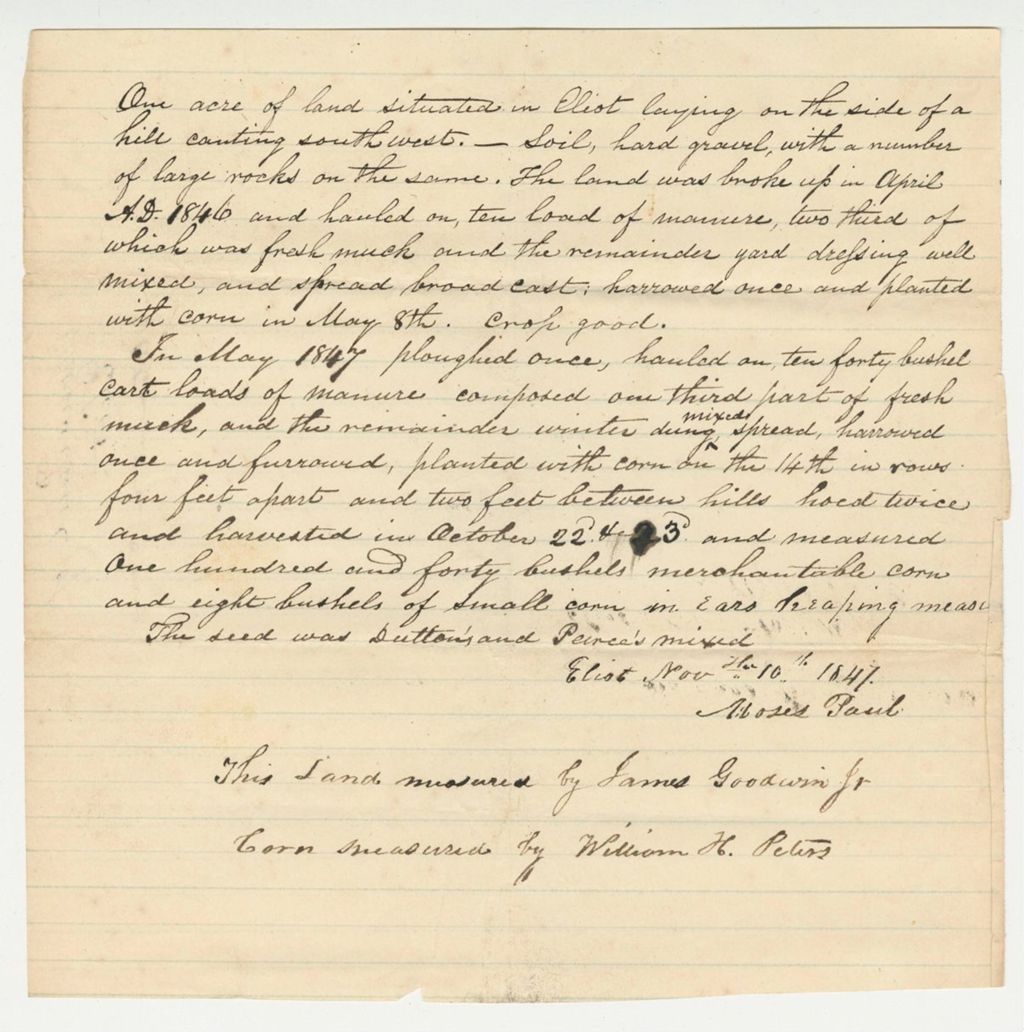 One acre of land situated in Eliot laying on the side of a
hill canting southwest. — Soil, hard gravel, with a number
of large rocks on the same. The land was broke up in April
A.D. 1846 and hauled on, ten load of manure, two third of
which was fresh muck and the remainder yard dressing well
mixed, and spread broad cast; harrowed once and planted
with corn in May 8th. Crop good.
In May 1847 ploughed once, hauled on, ten forty bushel
cart loads of manure composed one third part of fresh
muck, and the remainder winter dung, mixed spread, harrowed
once and furrowed, planted with corn on the 14th in rows
four feet apart and two feet between hills hoed twice
and harvested in October 22d. & 23d. and measured
One hundred and forty bushels merchantable corn
and eight bushels of small corn in Ears heaping measu
The seed was Dutton's and Peirce's mixed
Eliot Nov 10th 1847.
Moses Paul
This Land measured by James Goodwin Jr
Corn measured by William H. Peters